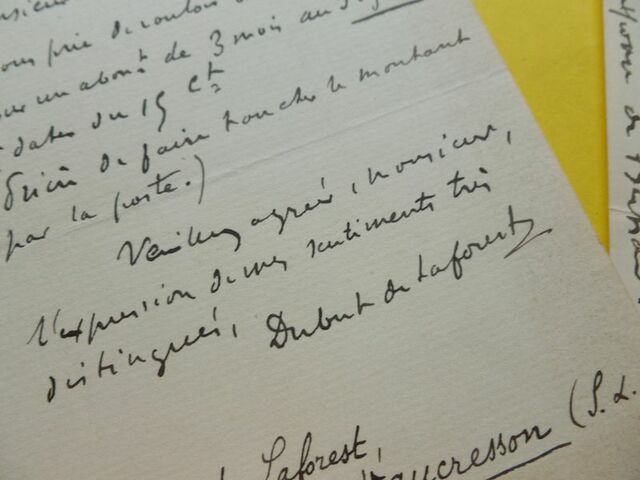 nsieur
ous prie de vouloir
un abont de 3 mois au
dater du 15 Ct
Prière de faire toucher le montant
par la poste.)
Veuillez agréer, Monsieur,
l'expression de mes sentiments très
distingués,
Dubut de Laforest
Laforest,
aucresson (S. &.